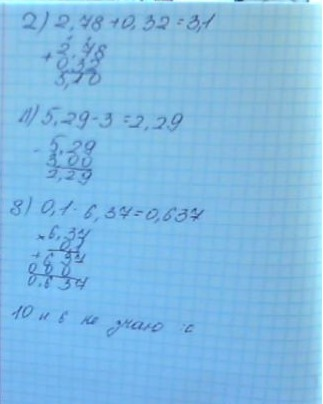 2) 2,78+0,32=3,1
2,78
+
0,32
3,10
4) 5,29-3=2,29
- 5,29
3,00
2,29
8) 0,1·6,37=0,637
×6,37
0,1
+ 637
000
0,637
10 и 6 не знаю :с